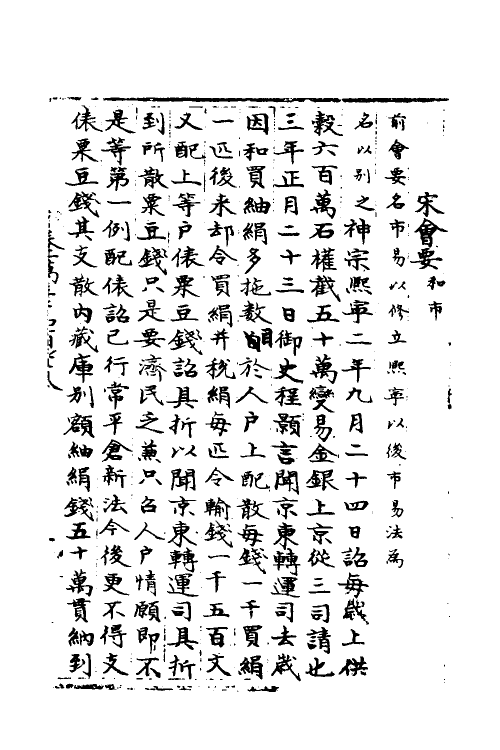 宋會要和市
前會要名市易以修立熙寧以後市易法為
名以別之神宗熙寧二年九月二十四日詔每歲上供
穀六百萬石權截五十萬變易金銀上京從三司請也
三年正月二十三日御史程顥言聞京東轉運司去歲
因和買紬絹多拖數目於人戶上配散每錢一千買絹
一匹後來却令買絹并稅絹每匹令輸錢一千五百文
又配上等戶俵粟豆錢詔具折以聞京東轉運司具折
到所散粟豆錢只是要濟民乏兼只召人戶情願即不
是等第一例配俵詔已行常平倉新法今後更不得支
俵粟豆錢其支散內藏庫別額紬絹錢五十萬貫納到